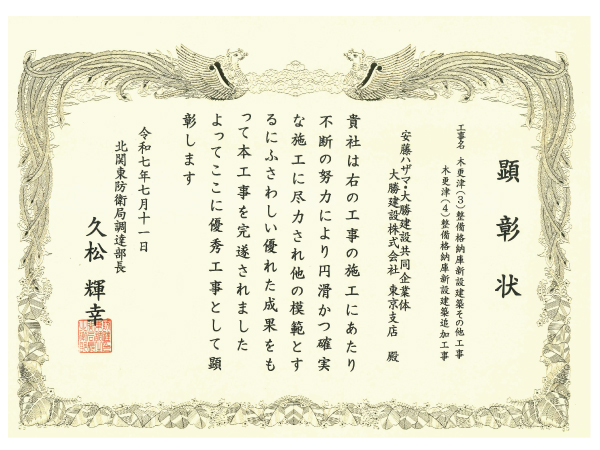 顕彰状
工事名 木更津(3)整備格納庫新設建築その他工事
木更津(4)整備格納庫新設建築追加工事
安藤ハザマ・大勝建設共同企業体
大勝建設株式会社 東京支店 殿
貴社は右の工事の施工にあたり
不断の努力により円滑かつ確実
な施工に尽力され他の模範とす
るにふさわしい優れた成果をも
って本工事を完遂されました
よってここに優秀工事として顕
彰します
令和七年七月十一日
北関東防衛局調達部長
久松 輝幸